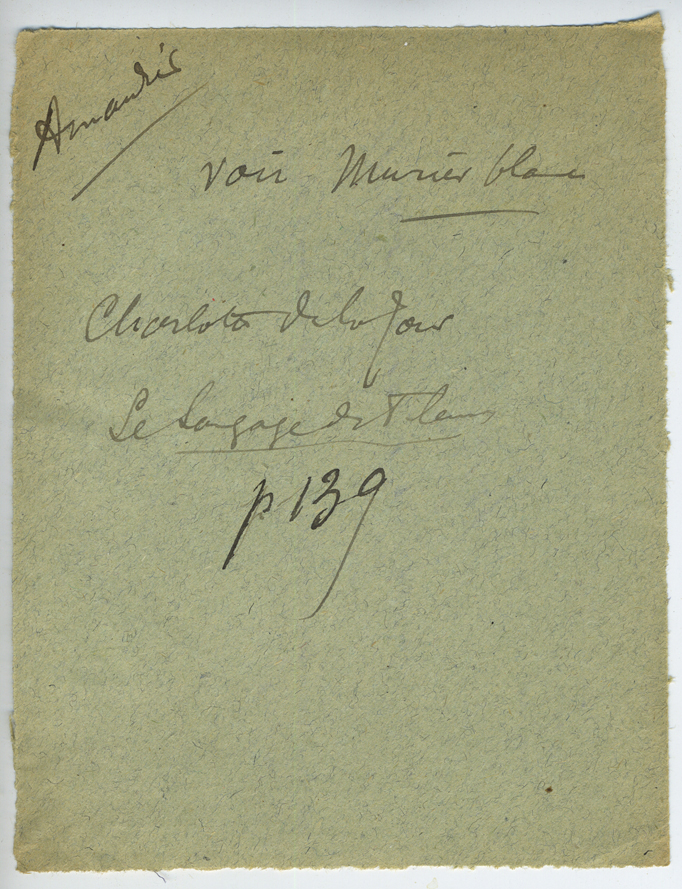 Amandier
voir Murier blanc
Charlotte de la Tour
Le Langage des Fleurs
p 139